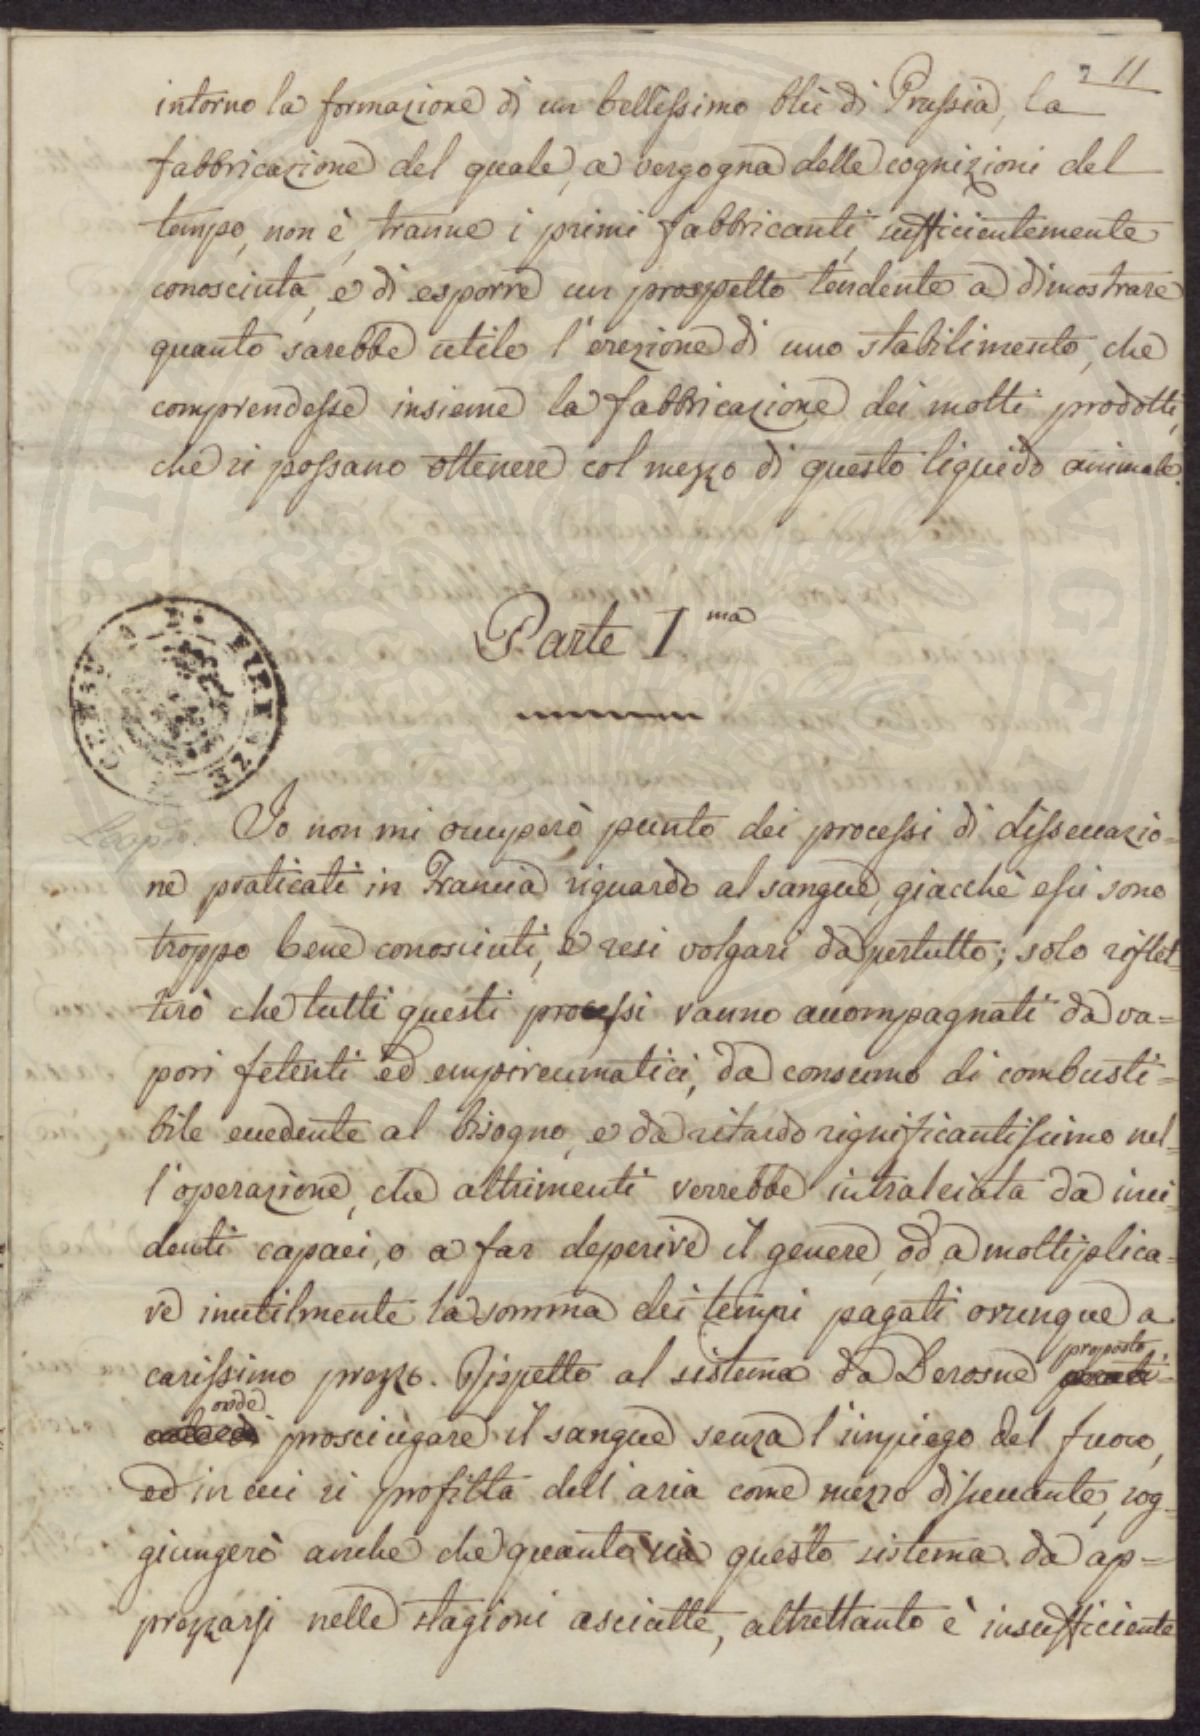 11
intorno la formazione di un bellissimo blù di Prussia, la
fabbricazione del quale, a vergogna delle cognizioni del
tempo, non è, tranne i primi fabbricanti, sufficientemente
conosciuta, e di esporre un prospetto tendente a dimostrare
quanto sarebbe utile l'erezione di uno stabilimento, che
comprendesse insieme la fabbricazione dei molti prodotti,
che si possano ottenere col mezzo di questo liquido animale.
Parte I ma
Io non mi occuperò punto dei processi di dissecazio=
ne praticati in Francia riguardo al sangue, giacchè essi sono
troppo bene conosciuti, e resi volgari da pertutto; solo riflet=
terò che tutti questi processi vanno accompagnati da va=
pori fetenti ed empireumatici, da consumo di combusti=
bile eccedente al bisogno, e da ritardo significantissimo nel=
l'operazione, che altrimenti verrebbe intralciata da inci=
denti capaci, o a far deperire il genere, od a moltiplica=
re inutilmente la somma dei tempi pagati ovunque a
carissimo prezzo. Rispetto al sistema da Derosne proposto
onde prosciugare il sangue senza l'impiego del fuoco,
ed in cui si profitta dell'aria come mezzo disseccante, sog=
giungerò anche che quanto sia questo sistema da ap=
prezzarsi nelle stagioni asciutte, altrettanto è insufficiente